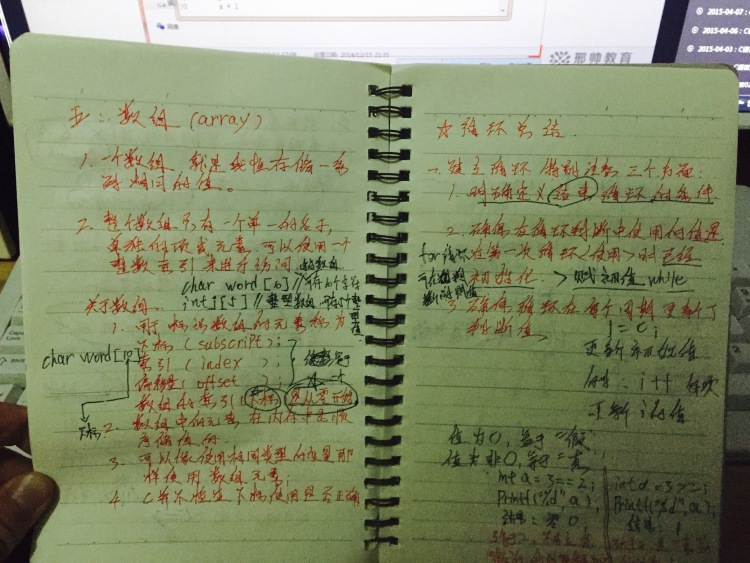 a + 1
网络
2014/12/15 21:35
邢帅教育
2015-04-07 : C
2015-04-06 : C
2015-04-03 : C
五：数组 (array)
1. 一个数组 就是线性存储一系
列相同的值。
2. 整个数组只有一个单一的名字，
单独的项或元素可以使用一个
整数索引来进行访问
char word [10] //可存10个字符
int j[5] //整型数组
关于数组.
1. 用于标识数组的元素称为
下标 (subscript);
索引 (index);
偏移量 (offset);
数组的索引(下标)是从零开始
char word[10]
下标
2. 数组中的元素在内存中是顺
序储存的
3. 可以像使用相同类型的变量那
样使用数组元素;
4. C并不检查下标使用是否正确
☆循环总结.
一. 建立循环 特别注意三个方面:
1. 明确定义结束循环的条件
2. 确保在循环判断中使用的值是
在第一次循环<使用>时已经
初始化. > 赋初值 while
for 循环
3. 确保循环在每个周期更新了
判断值,
i = 0;
更新初始值
i++ 每次
更新 i 的值
值为0, 等于"假"
值为非0, 等于"真"
int a = 3==2;
Printf("%d", a);
结果: 0
int a = 3>2;
Printf("%d", a);
结果: 1